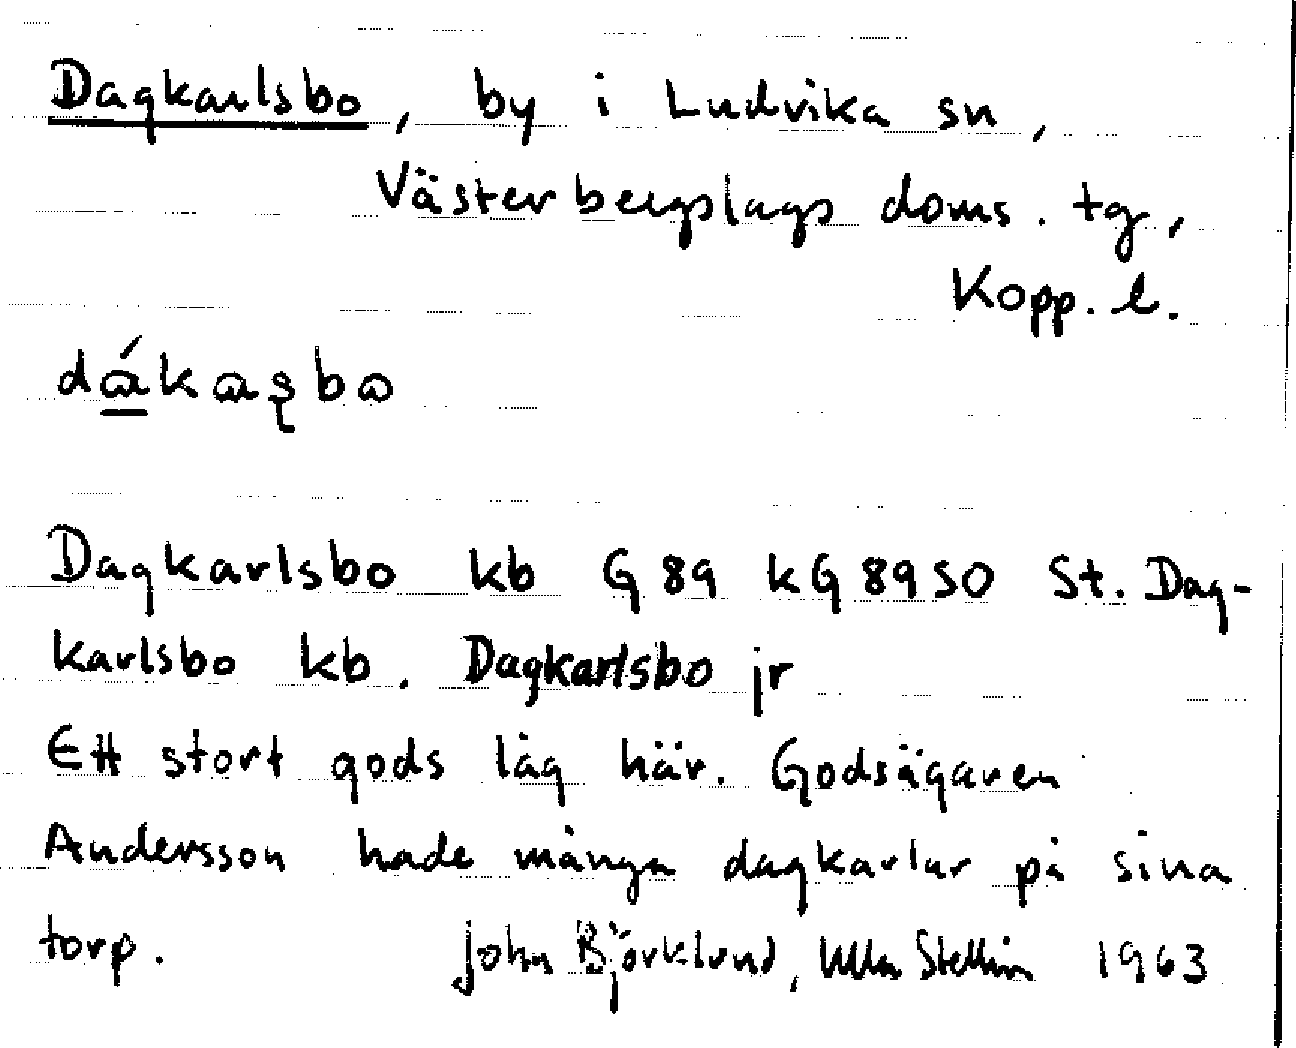 Dagkarlsbo, by i Ludvika sn,
Västerbergslags doms. tg,
Kopp. l.
dákaʂbo
Dagkarlsbo kb G 89 kG 8950 St. Dag-
karlsbo kb. Dagkarlsbo jr
Ett stort gods låg här. Godsägaren
Andersson hade många dagkarlar på sina
torp. John Björklund, Ulla Stellin 1963